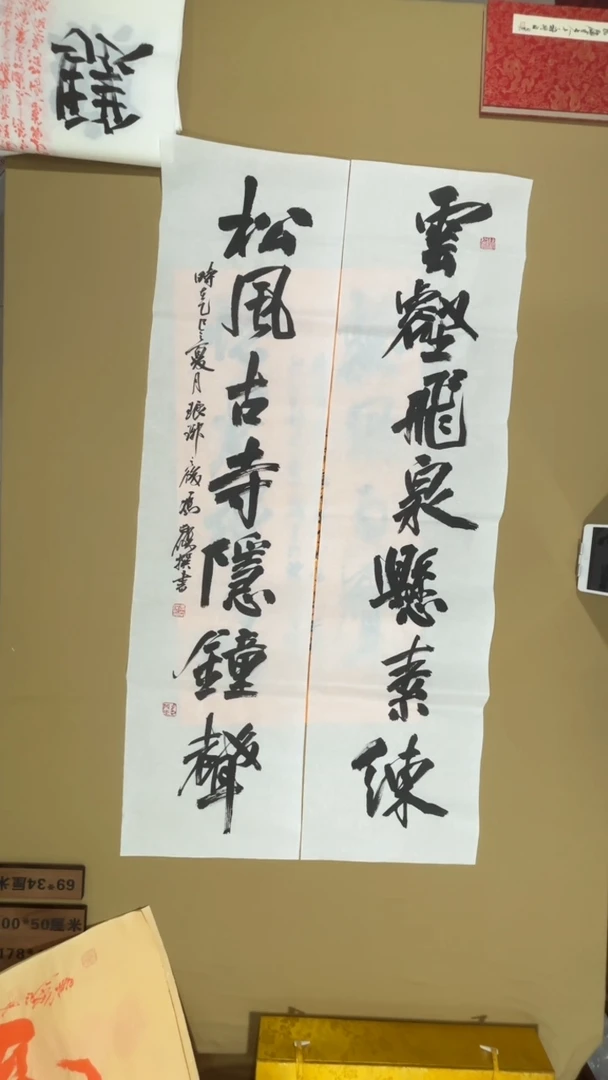 雲壑飛泉懸素練
松風古寺隱鐘聲
時在乙巳夏月
撰書
69*34厘米
00*50厘米
178*